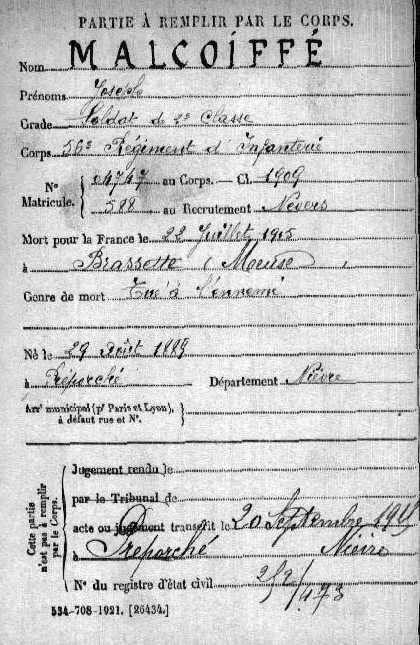 PARTIE À REMPLIR PAR LE CORPS.
Nom MALCOIFFÉ
Prénoms Joseph
Grade Soldat de 2e Classe
Corps 56e Régiment d'Infanterie
N° Matricule. { 04747 au Corps. — Cl. 1909
588 au Recrutement Nevers
Mort pour la France le 22 Juillet 1915
à (Meuse)
Genre de mort Tué à l'ennemi
Né le 29 Août 1889
à Préporché Département Nièvre
Arrt municipal (pr Paris et Lyon), à défaut rue et N°.
Cette partie n'est pas à remplir par le Corps.
Jugement rendu le
par le Tribunal de
acte ou jugement transcrit le 20 Septembre 1915
à Préporché Nièvre
N° du registre d'état civil
534-708-1921. [26434.]